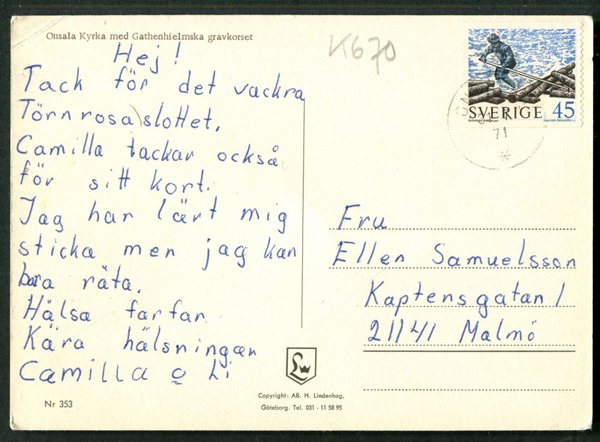 Onsala Kyrka med Gathenhielmska gravkorset
Hej!
Tack för det vackra
Törnrosaslottet.
Camilla tackar också
för sitt kort.
Jag har lärt mig
sticka men jag kan
bara räta.
Hälsa farfar
Kära hälsningan
Camilla o Li
Nr 353
K670
SVERIGE 45
71
Fru
Ellen Samuelsson
Kaptensgatan 1
21141 Malmö
Copyright: AB. H. Lindenhag,
Göteborg. Tel. 031 - 11 58 95